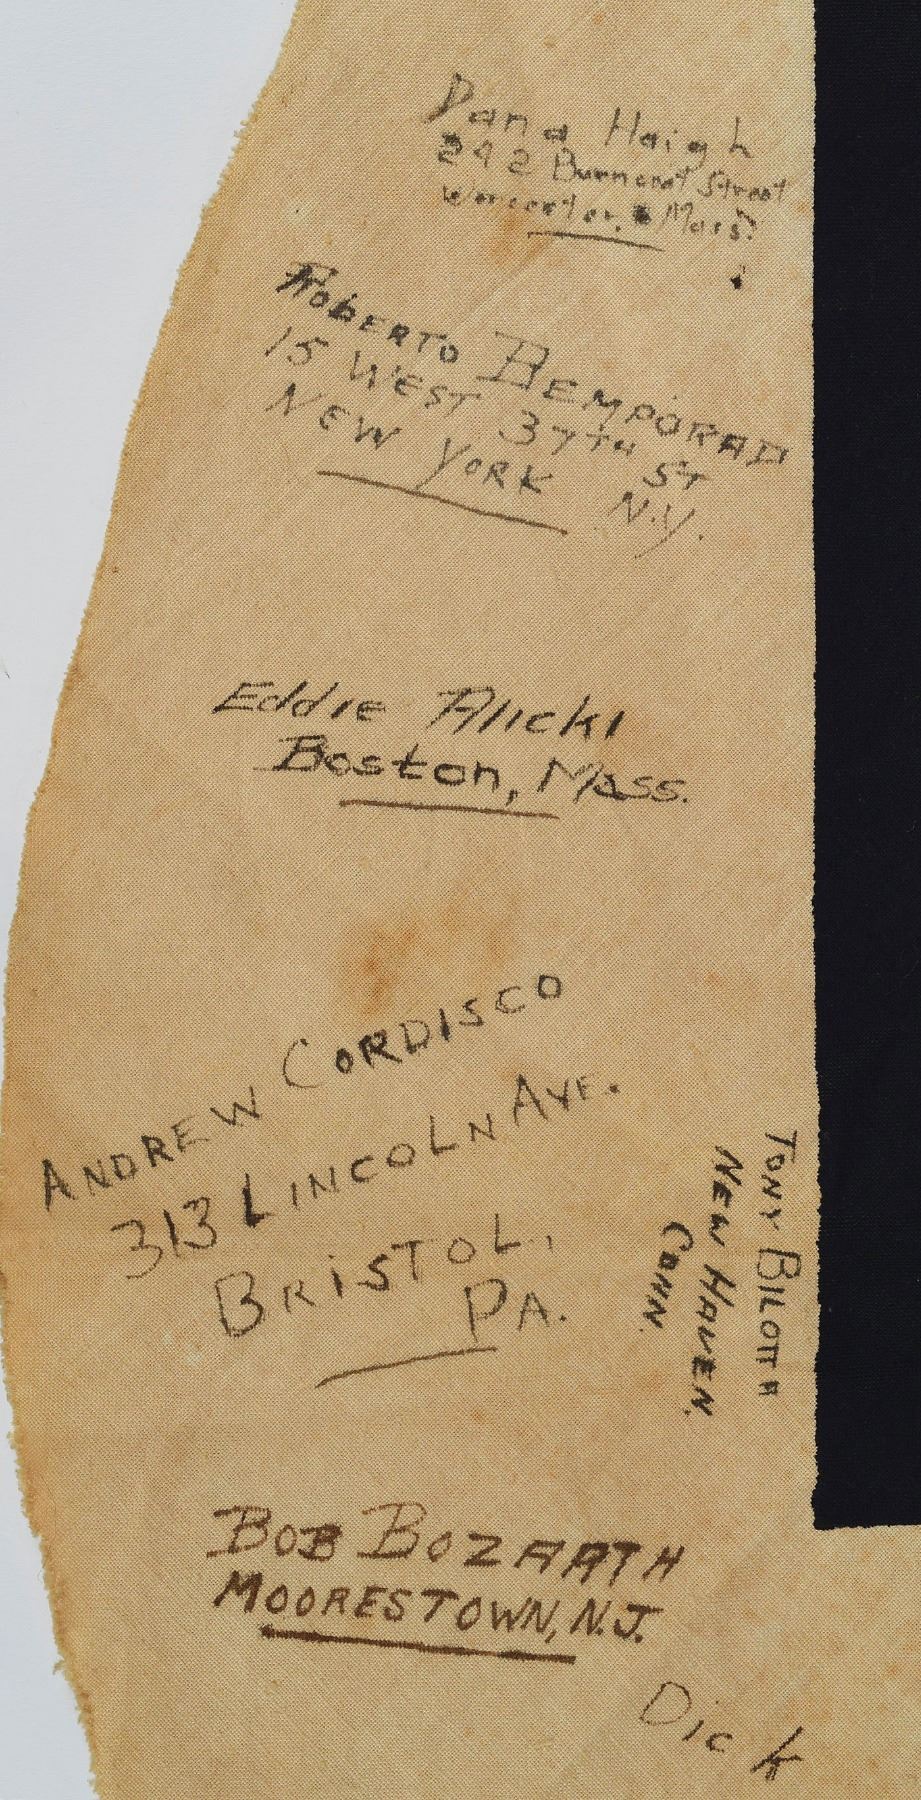 Dana Haigh
242 Burncoat Street
Worcester, Mass.
ROBERTO BEMPORAD
15 WEST 37TH ST
NEW YORK N.Y.
Eddie Alicki
Boston, Mass.
ANDREW CORDISCO
313 LINCOLN AVE.
BRISTOL,
PA.
TONY BILOTTA
NEW HAVEN.
CONN.
BOB BOZARTH
MOORESTOWN, N.J.
Dick